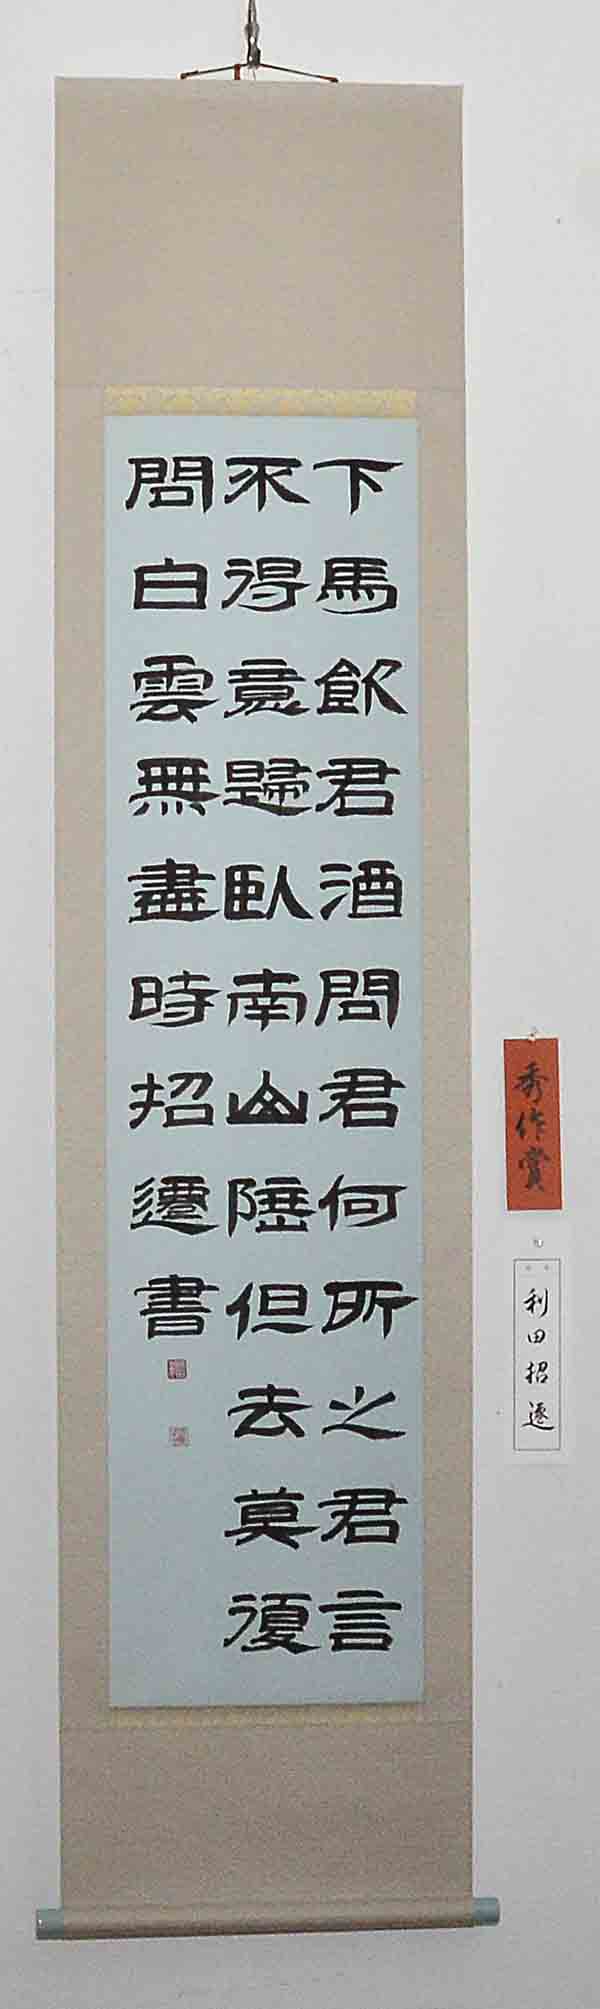 下馬飲君酒問君何所之君言
不得意歸臥南山陲但去莫復
問白雲無盡時招遷書
秀作賞
利田招遷